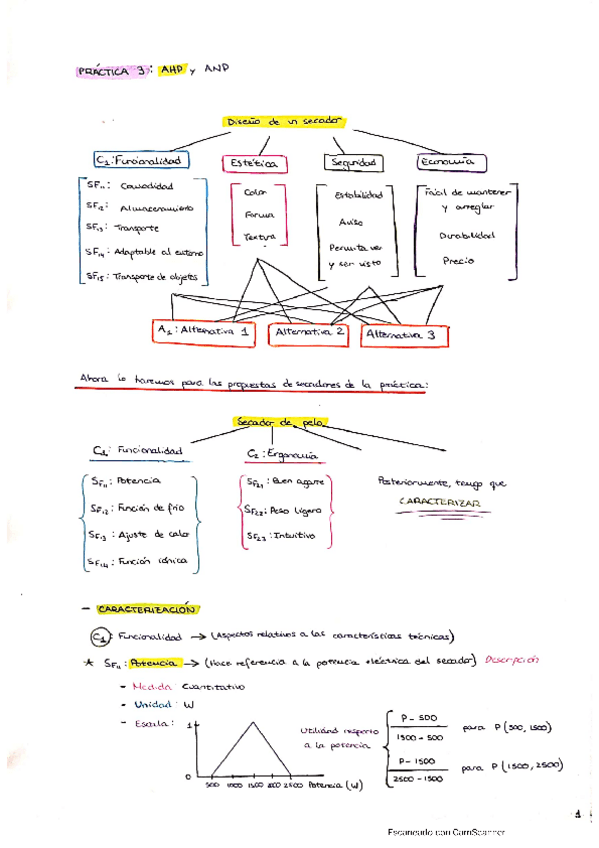 PRÁCTICA 3: AHP y ANP
Diseño de un secador
C₁: Funcionalidad
Estética
Seguridad
Economía
SF₁₁: Comodidad
SF₁₂: Almacenamiento
SF₁₃: Transporte
SF₁₄: Adaptable al entorno
SF₁₅: Transporte de objetos
Color
Forma
Textura
Estabilidad
Aviso
Permita ver
y ser visto
Fácil de mantener
y arreglar
Durabilidad
Precio
A₁: Alternativa 1
Alternativa 2
Alternativa 3
Ahora lo haremos para las propuestas de secadores de la práctica:
Secador de pelo
C₁: Funcionalidad
C₂: Ergonomía
SF₁₁: Potencia
SF₁₂: Función de frío
SF₁₃: Ajuste de calor
SF₁₄: Función iónica
SF₂₁: Buen agarre
SF₂₂: Peso ligero
SF₂₃: Intuitivo
Posteriormente, tengo que
CARACTERIZAR
- CARACTERIZACIÓN
C₁: Funcionalidad → (Aspectos relativos a las características técnicas)
* SF₁₁: Potencia → (Hace referencia a la potencia eléctrica del secador) Descripción
- Medida: Cuantitativo
- Unidad: W
- Escala:
1
0
500 1000 1500 2000 2500 Potencia (W)
Utilidad respecto
a la potencia
P - 500
1500 - 500
para P (500, 1500)
P - 1500
2500 - 1500
para P (1500, 2500)
1
Escaneado con CamScanner